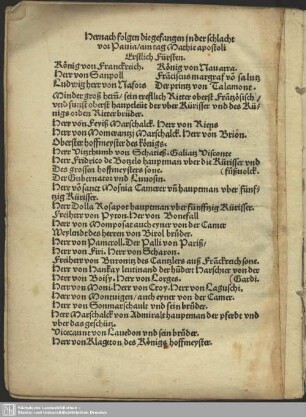 Hernach folgen die gefangen in der schlacht
vor Pauia/am tag Mathie apostoli
Erstlich Fürsten.
König von Franckreich. König von Nauarra.
Herr von Sanpoll Fräciscus margraf vō salutz
Ludwig herr von Nafors Der printz von Talamone.
Minder groß herrē/sein treflich Ritter oberst Frätzösisch/
vnd sunst oberst hauptleüt der vber Kürisser vnd des Kü-
nigs orden Ritter brüder.
Herr von Marschalck. Herr von Rieys
Herr von Momerantzi Marschalck. Herr von Brion.
Oberster hoffmeyster des königs.
Herr Vitzthumb von Galiatz Visconte
Herr Fridrico de Botzelo hauptman vber die Kürisser vnd
Des grossen hoffmeysters sone. (füßuolck.
Der Gubernator von Limosin.
Herr vō sanct Mosnia Camerer vn̄ hauptman vber fünf-
tzig Kürisser.
Herr Dolla Rosapot hauptman vber fünfftzig Kürisser.
Freiherr von Pyron. Her von Bonefall
Herr von Momposat auch eyner von der Camer
Weylend des herren von Birol brüder.
Herr von Pameroll. Der Palli von Pariß/
Herr von Firi. Herr von Scharon.
Freiherr von Burronitz des Cantzlers auß Fräckreich sone.
Herr von Hankay leutinand der brüder Harschier von der
Herr von Boisy. Herr von Lorges. (Gardi.
Herr von Moni. Herr von Croy. Herr von Laguschi.
Herr von Monuigen/auch eyner von der Camer.
Herr von Sonmarschault vnd sein brüder.
Herr Marschalck von Admiralt hauptman der pferdt vnd
vber das geschütz.
Vicecaunt von Lauedon vnd sein brüder.
Herr von Klageton des Königs hoffmeyster.